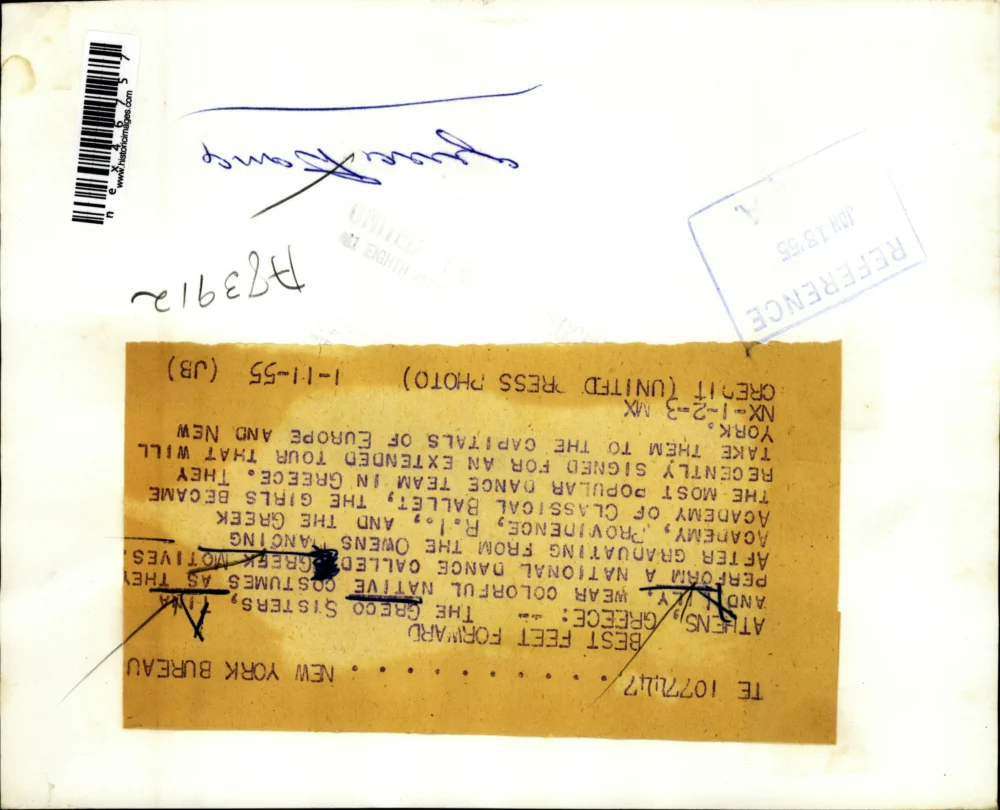 TE 1077447 . . . . . . . . . . . NEW YORK BUREAU
BEST FEET FORWARD
ATHENS, GREECE: -- THE GRECO SISTERS,
AND WEAR COLORFUL NATIVE COSTUMES AS THEY
PERFORM A NATIONAL DANCE CALLED GREEK MOTIVES.
AFTER GRADUATING FROM THE OWENS DANCING
ACADEMY, PROVIDENCE, R.I., AND THE GREEK
ACADEMY OF CLASSICAL BALLET, THE GIRLS BECAME
THE MOST POPULAR DANCE TEAM IN GREECE. THEY
RECENTLY SIGNED FOR AN EXTENDED TOUR THAT WILL
TAKE THEM TO THE CAPITALS OF EUROPE AND NEW
YORK.
NX-1-2-3 MX
CREDIT (UNITED PRESS PHOTO) 1-11-55 (JB)
A73912
REFERENCE
JAN 18 '55
A.
UNITED
EIGHTH
nex46757
www.historicimages.com